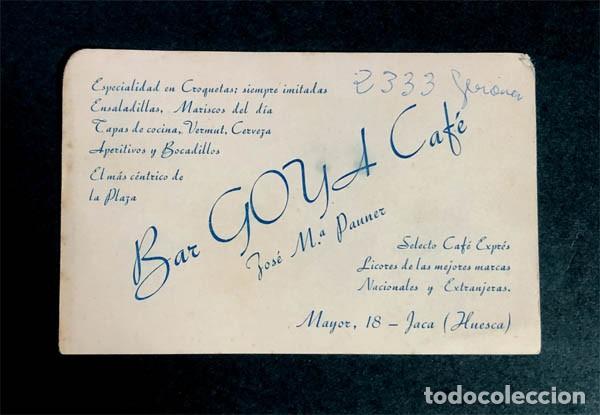 Especialidad en Croquetas; siempre imitadas
Ensaladillas, Mariscos del día
Tapas de cocina, Vermut, Cerveza
Aperitivos y Bocadillos
El más céntrico de
la Plaza
2333 Gerona
Bar GOYA Café
José M.ª Pauner
Selecto Café Exprés
Licores de las mejores marcas
Nacionales y Extranjeras.
Mayor, 18 - Jaca (Huesca)
todocoleccion